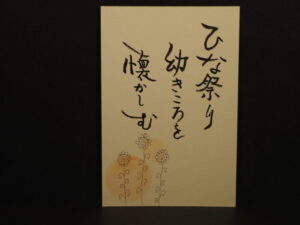 ひな祭り
幼きころを
懐かしむ